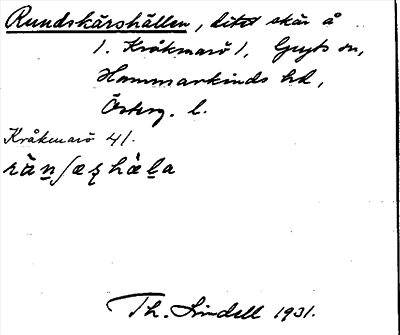 Rundskärshällen, litet skär å
/. Kråkmarö /, Gryts sn,
Hammarkinds hd,
Österg. l.
Kråkmarö 4/.
Th. Lindell 1931.